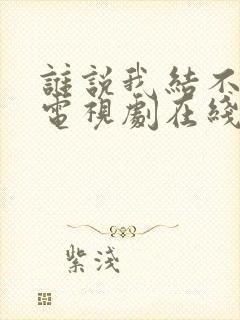 誰説我結不
電視劇在綫
紫淺